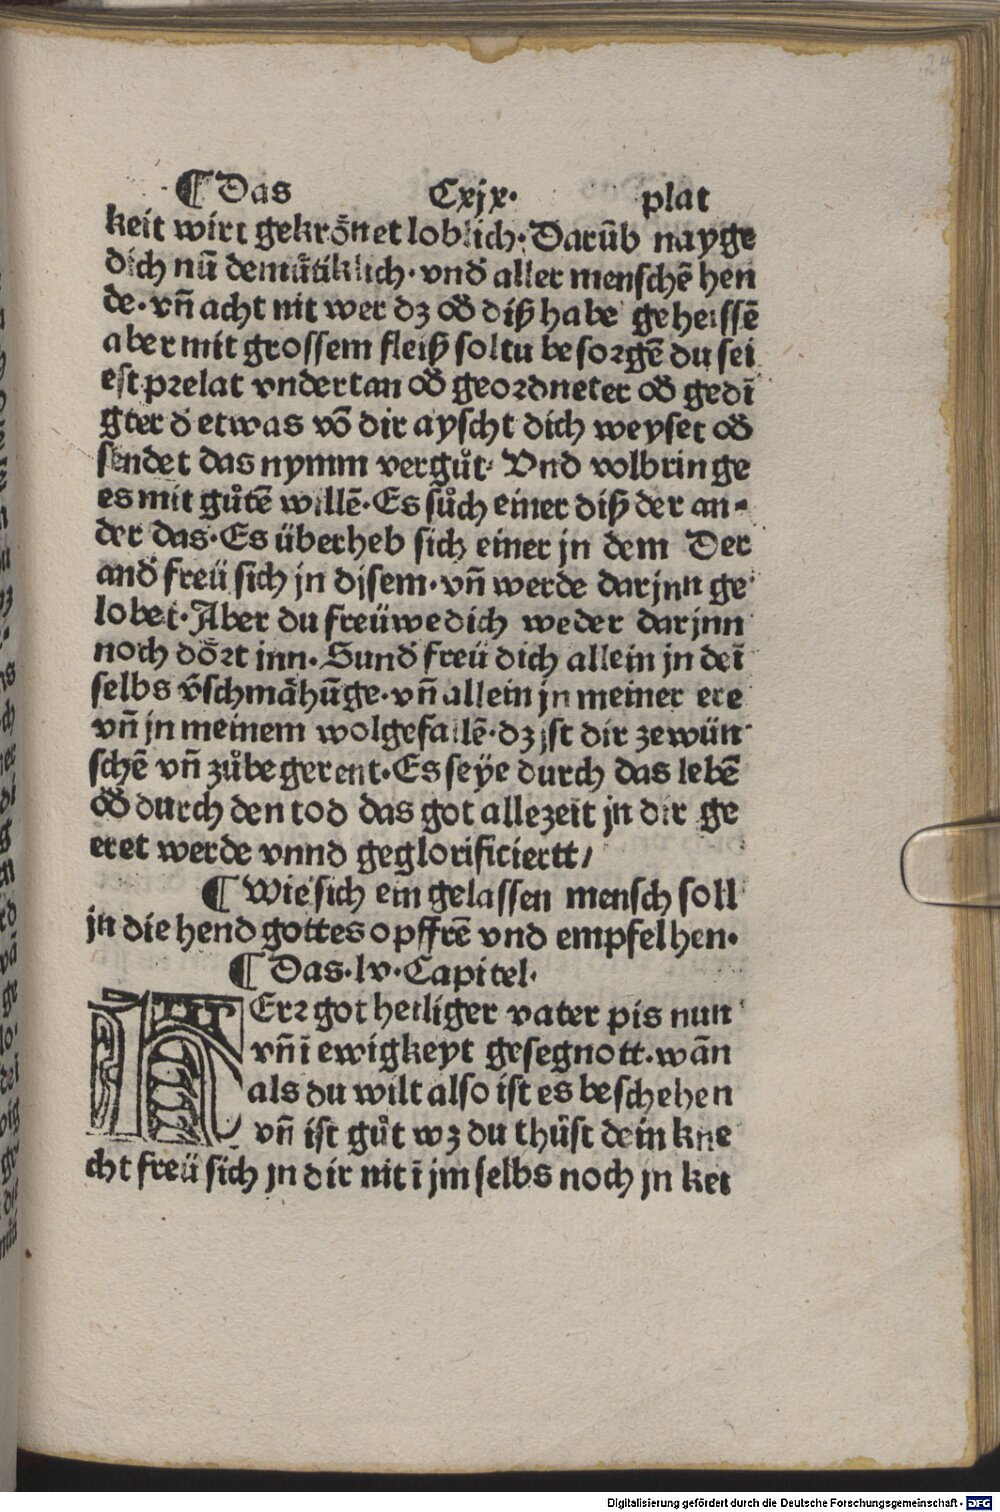 ¶ Das Cxjx· plat
keit wirt gekrȫnet loblich· Darūb nayge
dich nū demůtiklich· vnđ aller menschē hen
de· vn̄ acht nit wer dz ođ diß habe geheissē
aber mit grossem fleiß soltu besorgē du sei
est prelat vndertan ođ geordneter ođ gedī
gter đ etwas vō dir ayscht dich weyset ođ
sendet das nymm vergůt· Vnd volbringe
es mit gůtē willē· Es sůch einer diß der an-
der das· Es überheb sich einer jn dem Der
anđ freü sich jn djsem· vn̄ werde darjnn ge
lobet· Aber du freüwe dich weder darjnn
noch dört inn· Sunđ freü dich allein jn deī
selbs v̄schmāhūge· vn̄ allein jn meiner ere
vn̄ jn meinem wolgefallē· dz jst dir zewün
schē vn̄ zůbegerent· Es seÿe durch das lebē
ođ durch den tod das got allezeit jn dir ge
eret werde vnnd geglorificiertt/
¶ Wie sich ein gelassen mensch soll
jn die hend gottes opffrē vnd empfelhen·
¶ Das· lv· Capitel·
HErr got heiliger vater pis nun
vn̄ ī ewigkeyt gesegnott· wān
als du wilt also ist es beschehen
vn̄ ist gůt wz du thůst dein kne
cht freü sich jn dir nit ī jm selbs noch jn kei
24
Digitalisierung gefördert durch die Deutsche Forschungsgemeinschaft - DFG